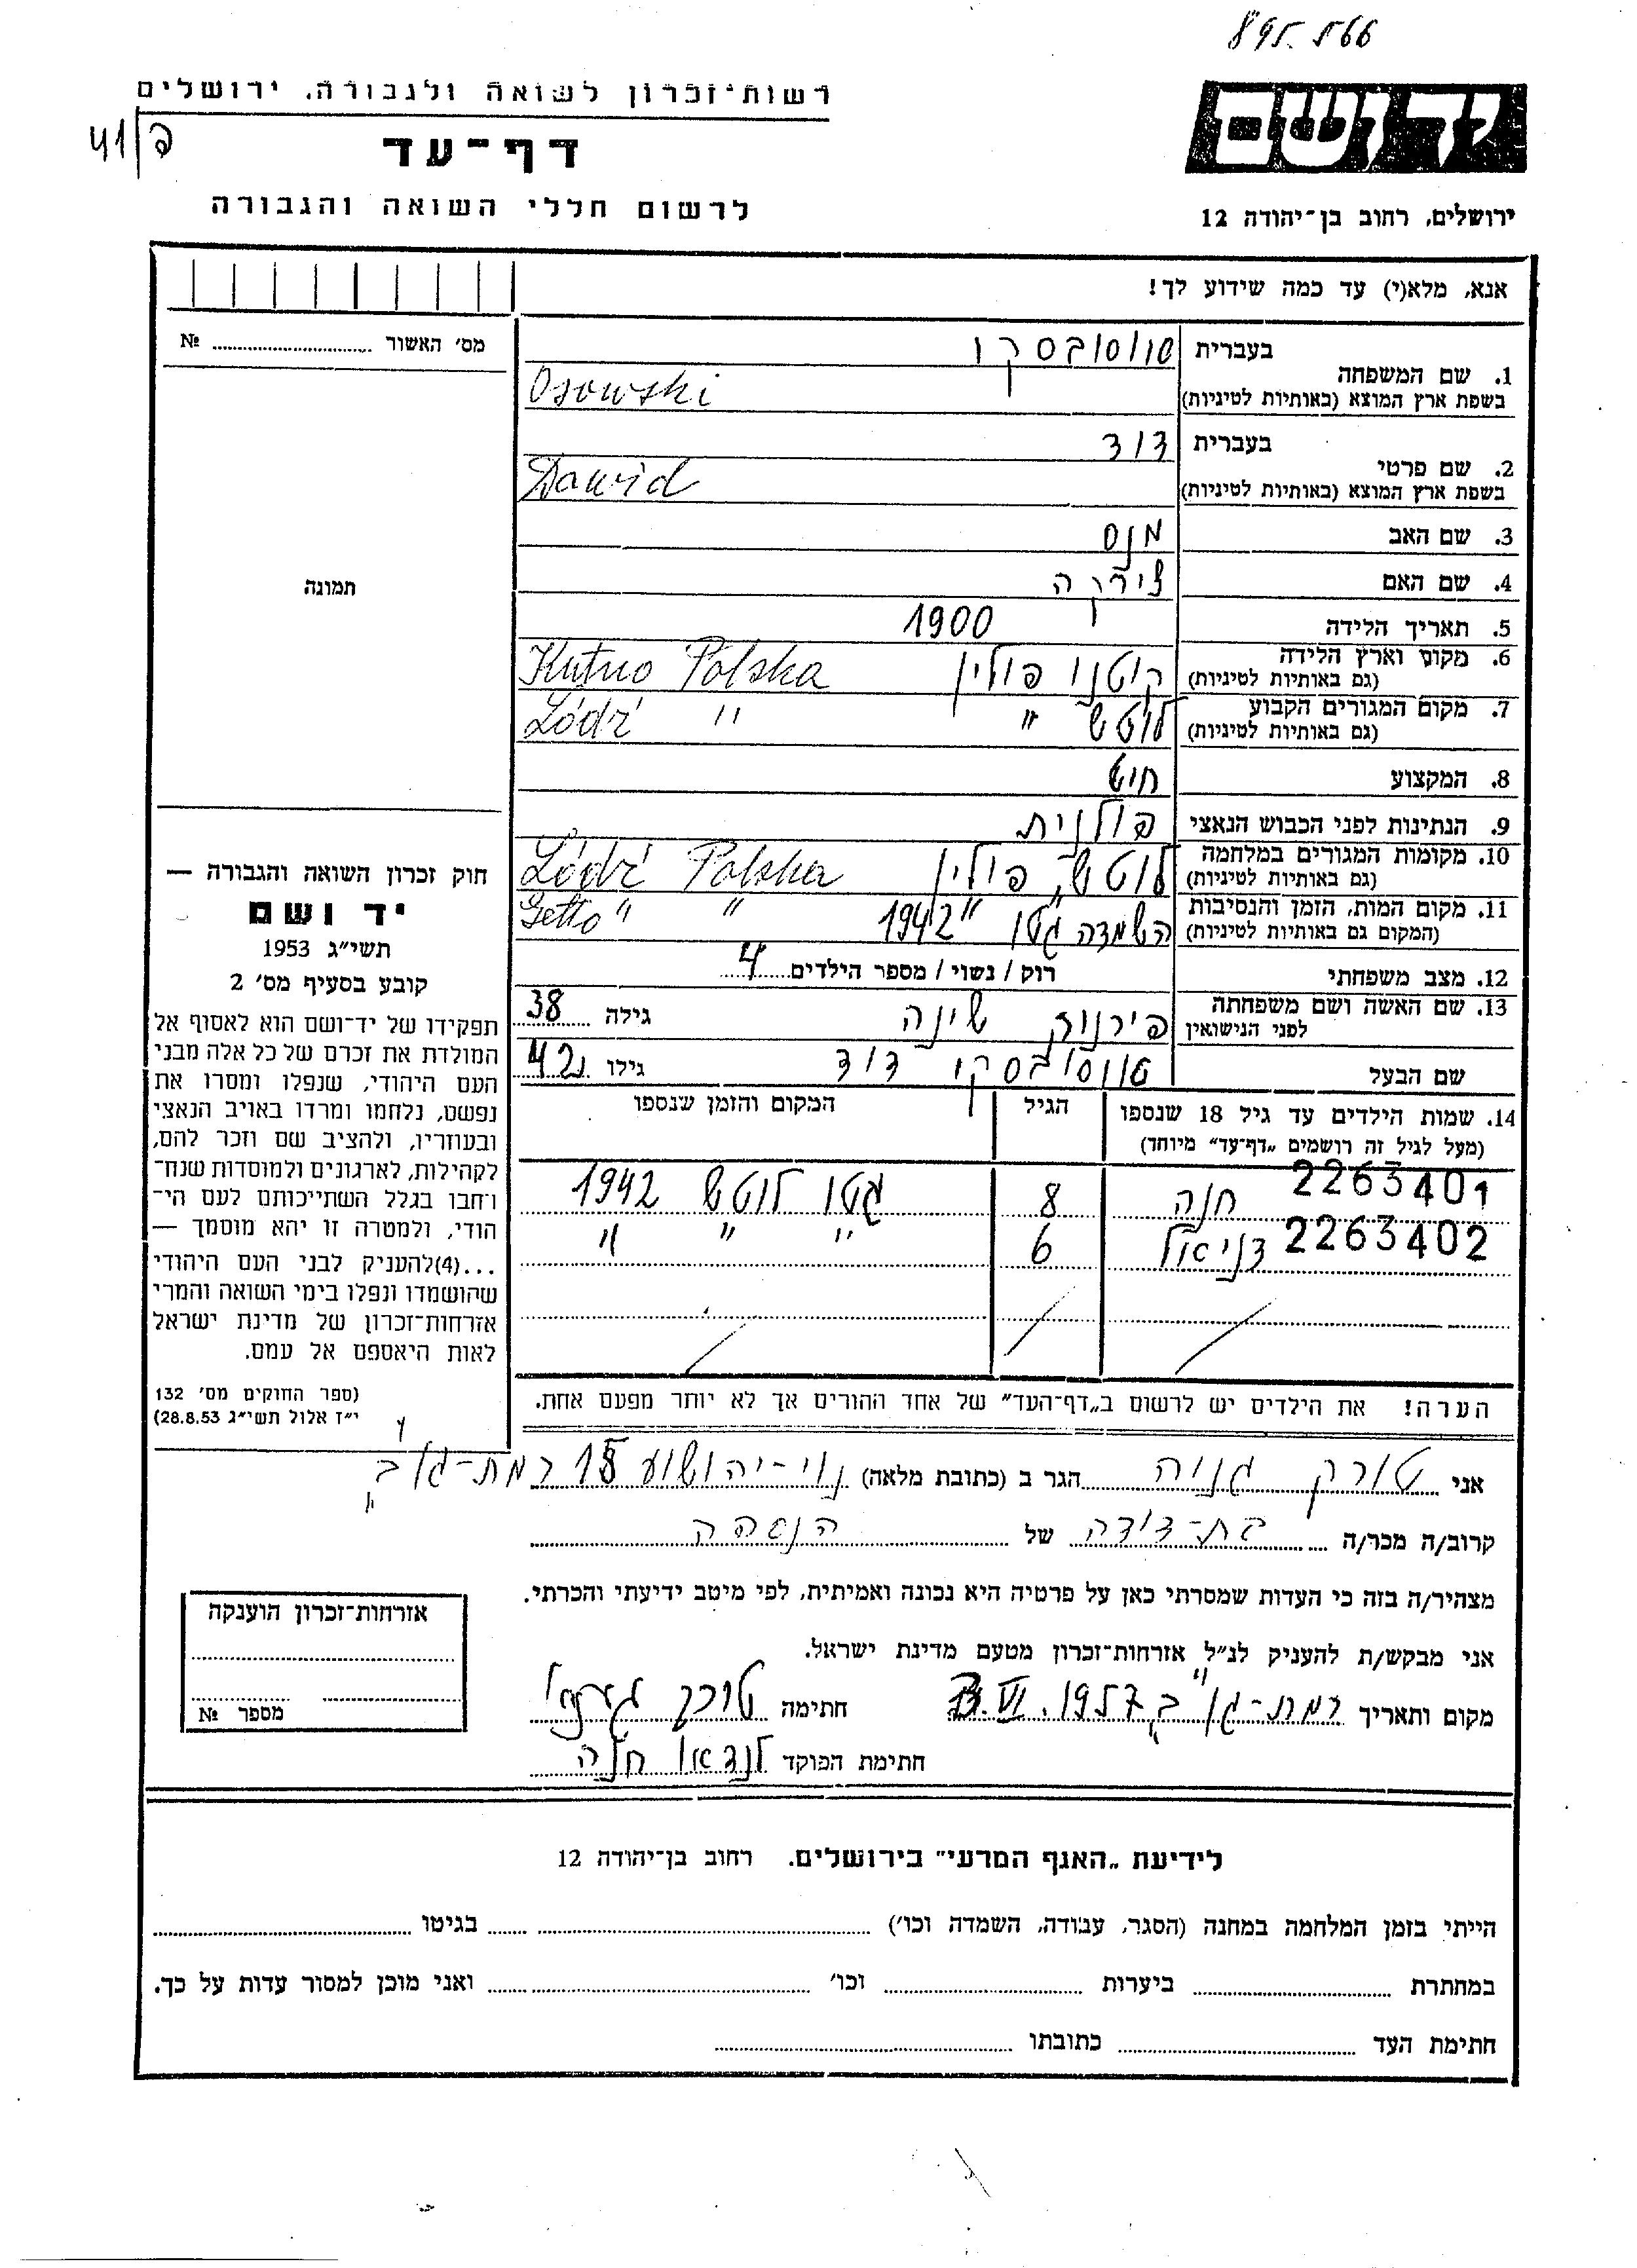 895.566
רשות־זכרון לשואה ולגבורה, ירושלים
פ/41
דף־עד
לרשום חללי השואה והגבורה
יד ושם
ירושלים, רחוב בן־יהודה 12
אנא, מלא(י) עד כמה שידוע לך!
מס' האשור № ..........
תמונה
1. שם המשפחה בעברית אוסובסקי
בשפת ארץ המוצא (באותיות לטיניות) Osowski
2. שם פרטי בעברית דוד
בשפת ארץ המוצא (באותיות לטיניות) Dawid
3. שם האב מנס
4. שם האם
5. תאריך הלידה 1900
6. מקום וארץ הלידה (גם באותיות לטיניות) קוטנו פולין Kutno Polska
7. מקום המגורים הקבוע (גם באותיות לטיניות) לוטש " Łódź "
8. המקצוע חיט
9. הנתינות לפני הכבוש הנאצי פולנית
10. מקומות המגורים במלחמה (גם באותיות לטיניות) לוטש, פולין Łódź Polska
11. מקום המות, הזמן והנסיבות (המקום גם באותיות לטיניות) השמדה גטו " 1942 Getto " "
12. מצב משפחתי רוק / נשוי / מספר הילדים 4
13. שם האשה ושם משפחתה לפני הנישואין שינה גילה 38
שם הבעל אוסובסקי דוד גילו 42
14. שמות הילדים עד גיל 18 שנספו הגיל המקום והזמן שנספו
(מעל לגיל זה רושמים „דף־עד" מיוחד)
2263401 חנה 8 גטו לוטש 1942
2263402 דניאל 6 " " "
הערה! את הילדים יש לרשום ב„דף־העד" של אחד ההורים אך לא יותר מפעם אחת.
חוק זכרון השואה והגבורה —
יד ושם
תשי״ג 1953
קובע בסעיף מס' 2
תפקידו של יד־ושם הוא לאסוף אל
המולדת את זכרם של כל אלה מבני
העם היהודי, שנפלו ומסרו את
נפשם, נלחמו ומרדו באויב הנאצי
ובעוזריו, ולהציב שם וזכר להם,
לקהילות, לארגונים ולמוסדות שנח־
רבו בגלל השתייכותם לעם הי־
הודי, ולמטרה זו יהא מוסמך —
...(4)להעניק לבני העם היהודי
שהושמדו ונפלו בימי השואה והמרי
אזרחות־זכרון של מדינת ישראל
לאות היאספם אל עמם.
(ספר החוקים מס' 132
י״ז אלול תשי״ג 28.8.53)
אני טורק גניה הגר ב (כתובת מלאה) נוי־יהושוע רמת־גן
קרוב/ה מכר/ה בת־דודה של הנספה
מצהיר/ה בזה כי העדות שמסרתי כאן על פרטיה היא נכונה ואמיתית, לפי מיטב ידיעתי והכרתי.
אני מבקש/ת להעניק לנ״ל אזרחות־זכרון מטעם מדינת ישראל.
מקום ותאריך רמת־גן VI.1957 חתימה טורק
חתימת הפוקד לנדאו חלה
אזרחות־זכרון הוענקה
מספר №
לידיעת „האגף המדעי" בירושלים. רחוב בן־יהודה 12
הייתי בזמן המלחמה במחנה (הסגר, עבודה, השמדה וכו') .......... בגיטו ..........
במחתרת .......... ביערות .......... וכו' .......... ואני מוכן למסור עדות על כך.
חתימת העד .......... כתובתו ..........